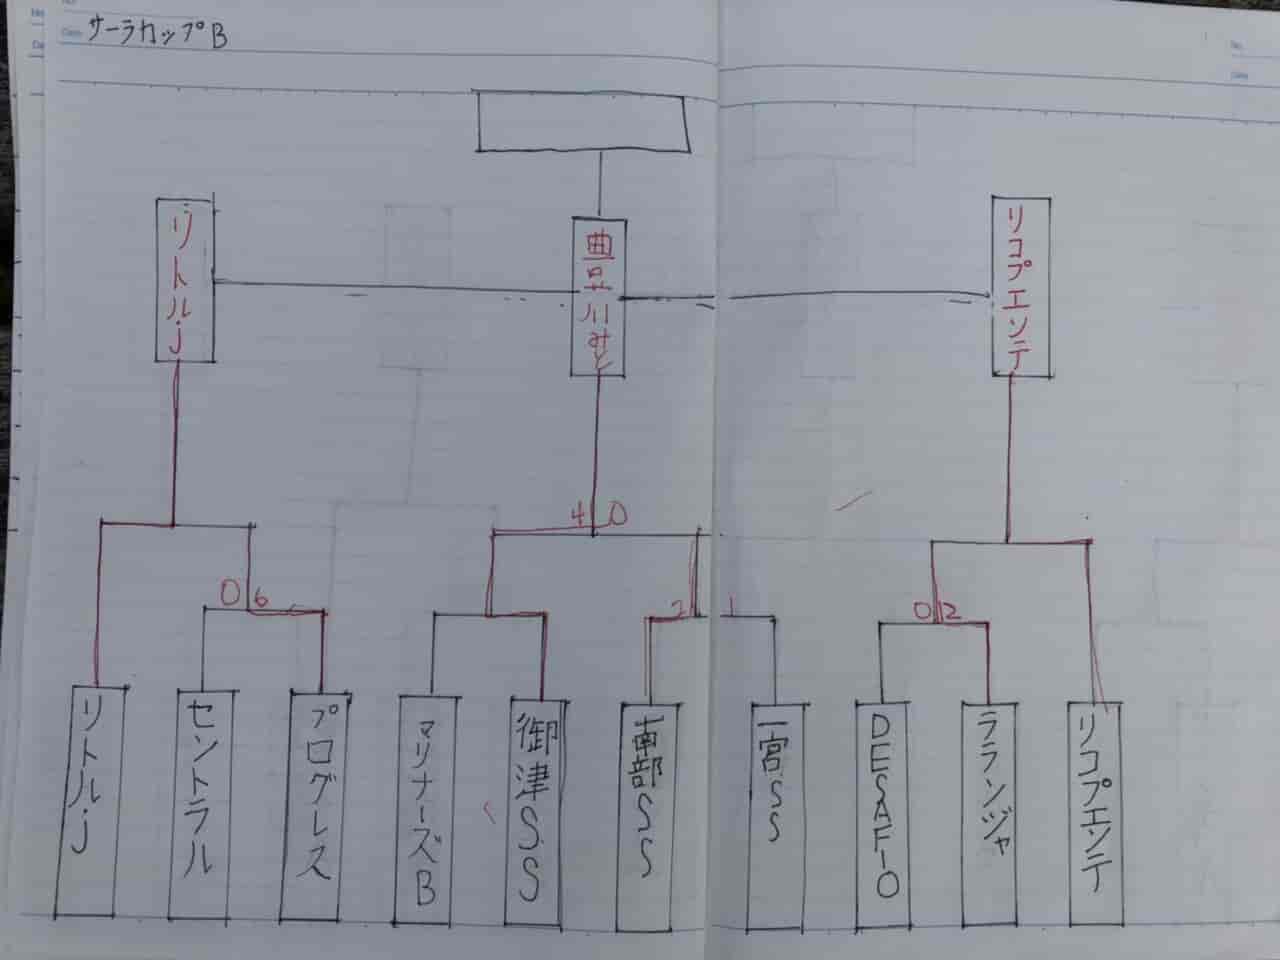 サーラカップB
No.
Date
リトル.j
豊川みと
リコプエンテ
4 0
0 6
2 1
0 2
リトル.j
セントラル
プログレス
マリナーズB
御津SS
南部SS
一宮SS
DESAFIO
ラランジャ
リコプエンテ